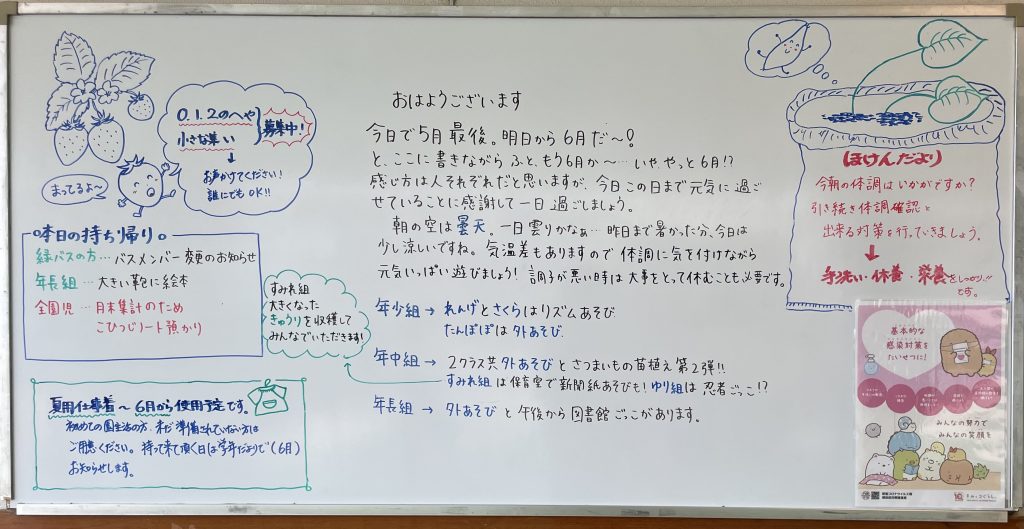 0.1.2のへや
小さな集い
募集中!
↓
お声かけてください!
誰にでもOK!!
まってるよ〜
本日の持ち帰り
緑バスの方…バスメンバー変更のお知らせ
年長組…大きい靴に絵本
全園児…月末集計のため
こひつじノート預かり
すみれ組
大きくなった
きゅうりを収穫して
みんなでいただきます!
夏用仕事着〜6月から使用予定です。
初めての園生活の方、未だ準備されていない方は
ご用意ください。持って来て頂く日は学年だよりで(6月)
お知らせします。
おはようございます
今日で5月最後。明日から6月だ〜!
と、ここに書きながらふと、もう6月か〜…いや、やっと6月!?
感じ方は人それぞれだと思いますが、今日この日まで元気に過ご
せていることに感謝して一日過ごしましょう。
朝の空は曇天。一日曇りかなぁ…昨日まで暑かった分、今日は
少し涼しいですね。気温差もありますので体調に気を付けながら
元気いっぱい遊びましょう!調子が悪い時は大事をとって休むことも必要です。
年少組→れんげとさくらはリズムあそび
たんぽぽは外あそび.
年中組→2クラス共外あそびとさつまいもの苗植え第2弾!!
すみれ組は保育室で新聞紙あそびも!ゆり組は忍者ごっこ!?
年長組→外あそびと午後から図書館ごっこがあります。
ほけんだより
今朝の体調はいかがですか?
引き続き体調確認と
出来る対策を行っていきましょう。
↓
手洗い・休養・栄養をしっかり!!
です。
基本的な
感染対策を
たいせつに!
みんなの努力で
みんなの笑顔を